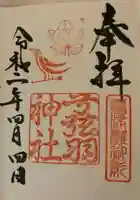 奉拝
弓弦羽
神社
令和二年四月四日